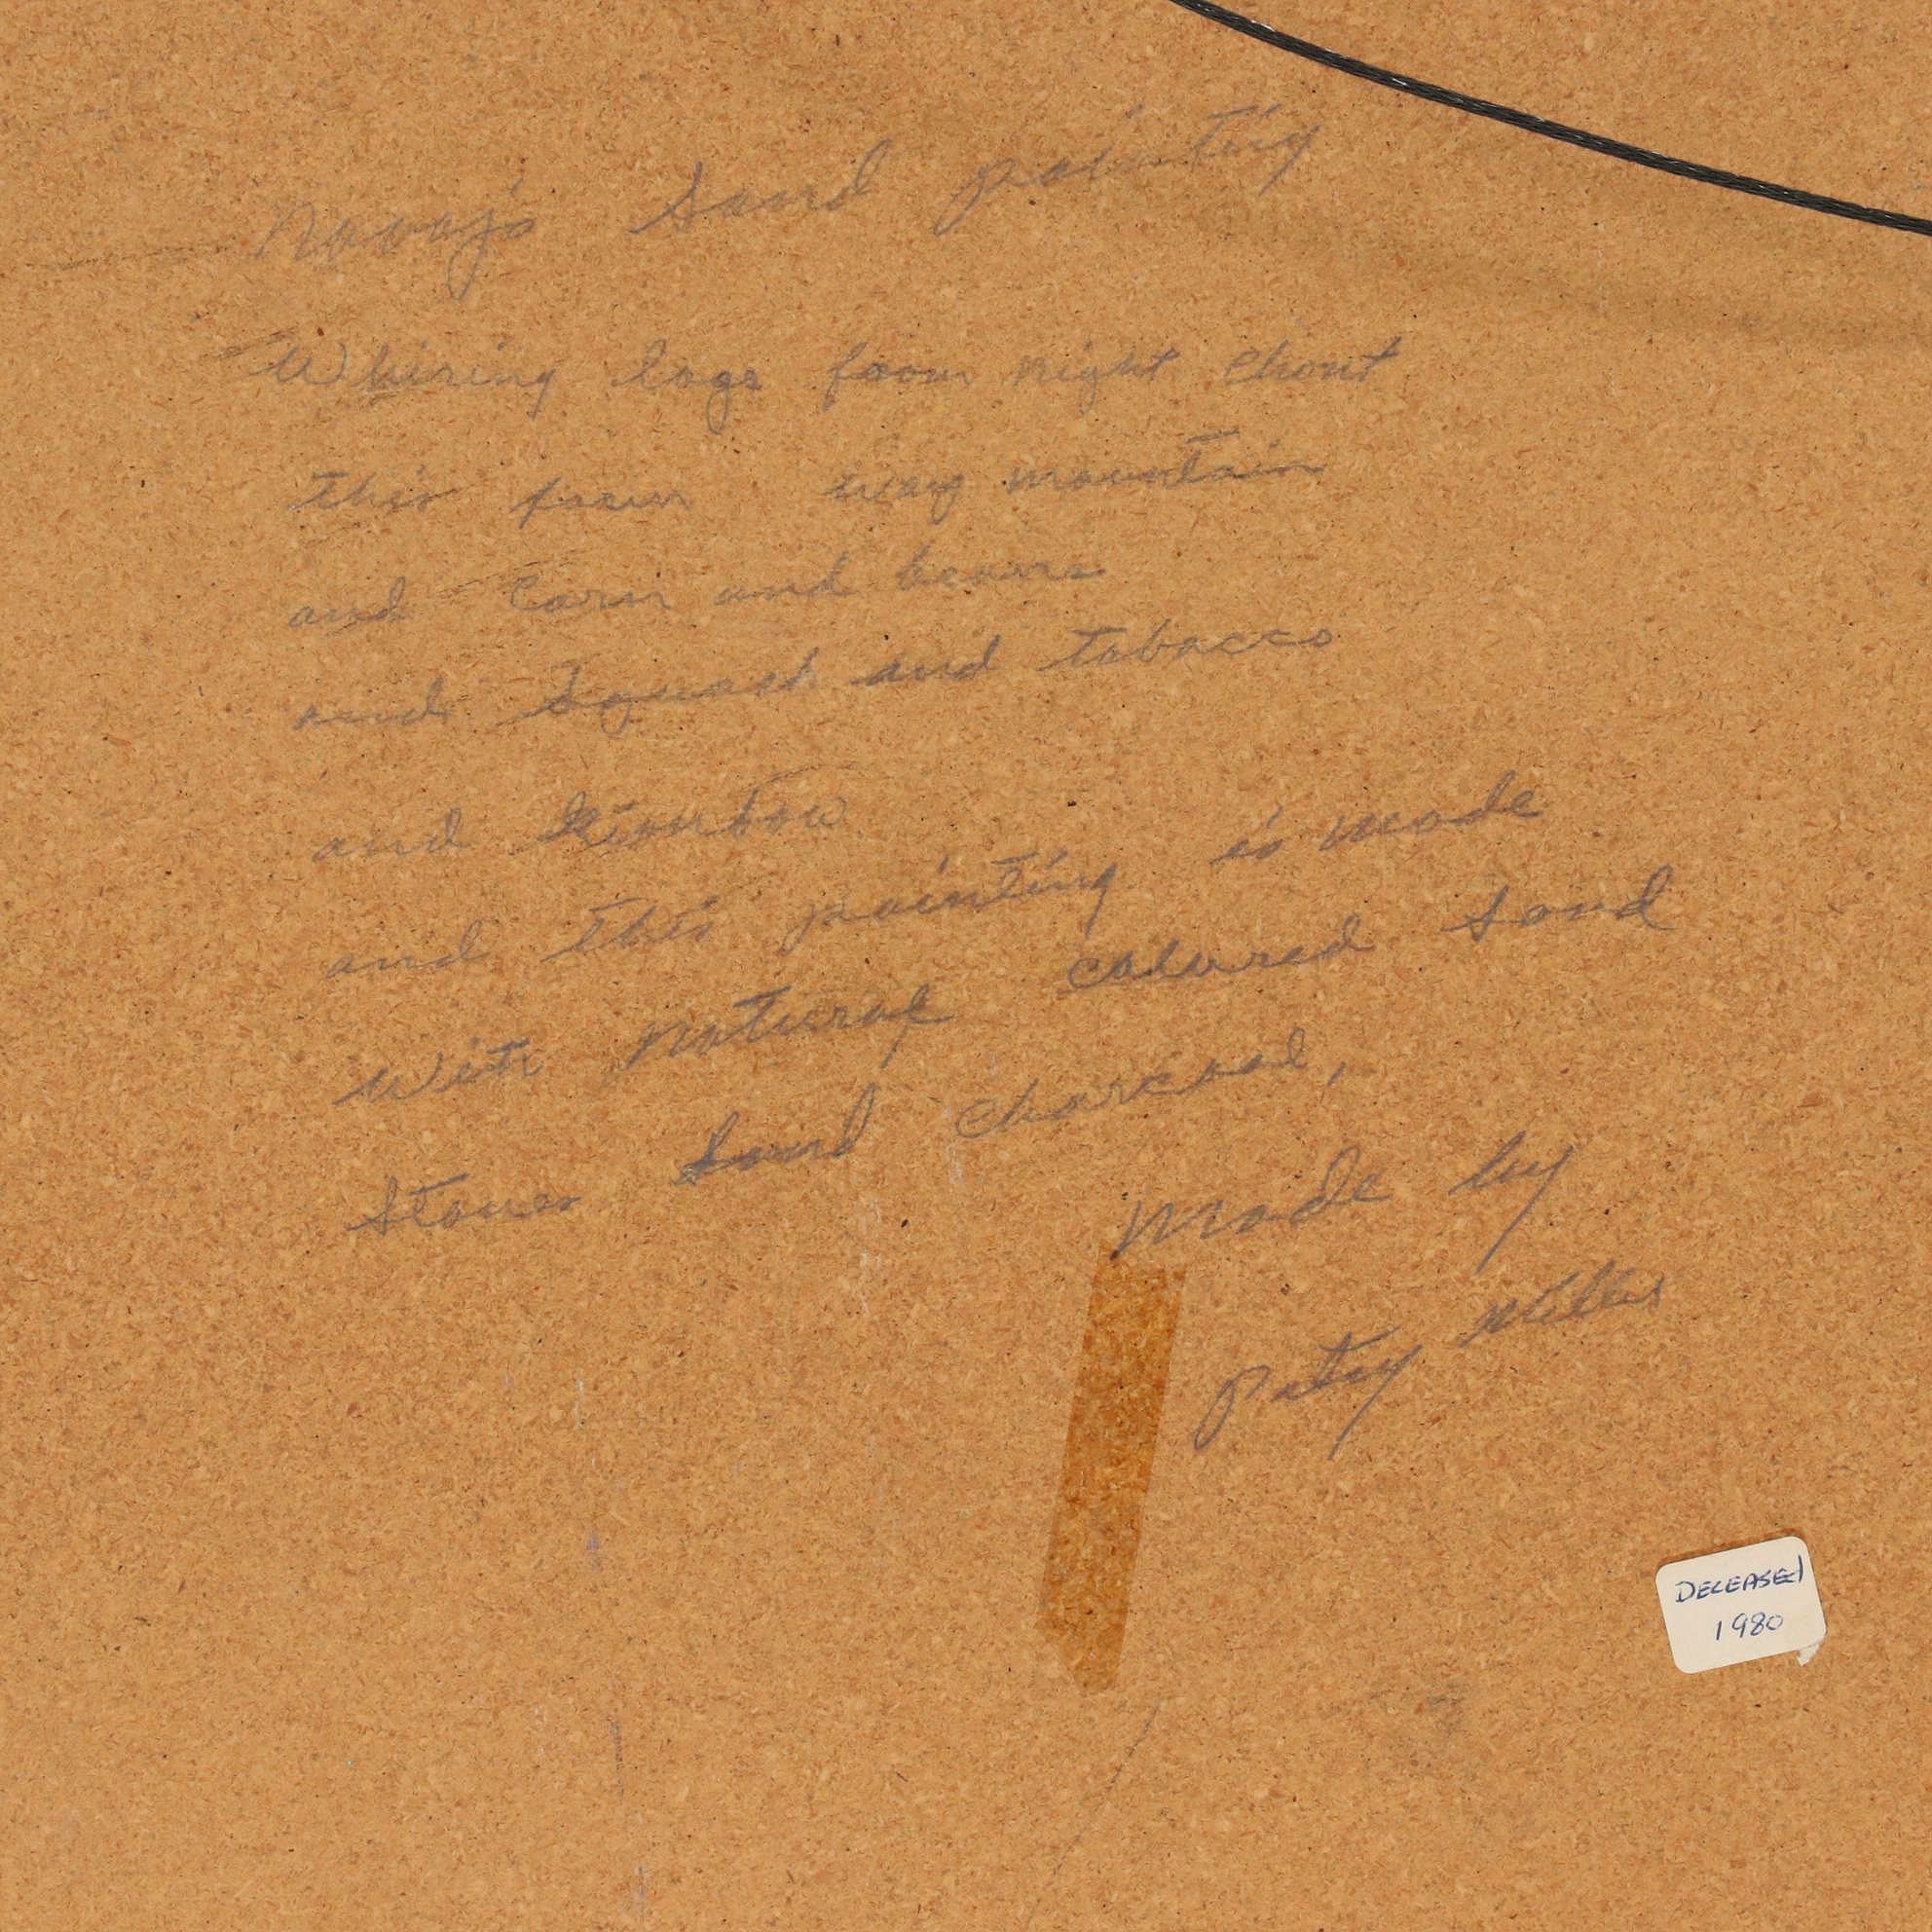 Navajo Sand painting
Whiring logs from night chant
this from way mountain
and Corn and beans
and Squash and tobacco
and
and this painting is made
with natural colored sand
Stones Sand charcoal,
Made by
Patsy Miller
DECEASED
1980